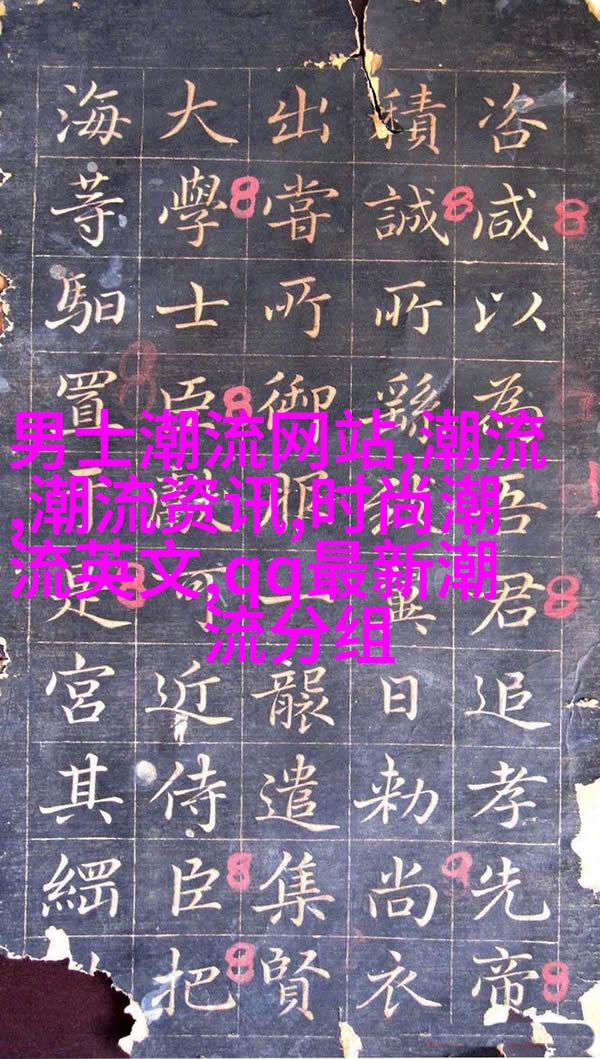 咨咸以為吾君追孝先帝
積誠所繇日勅尚衣
出嘗所御一襲遣集賢
大學士臣可近侍臣把
海等馹置于是宮其
男士潮流网站,潮流
,潮流资讯,时尚潮
流英文,qq最新潮
流分组